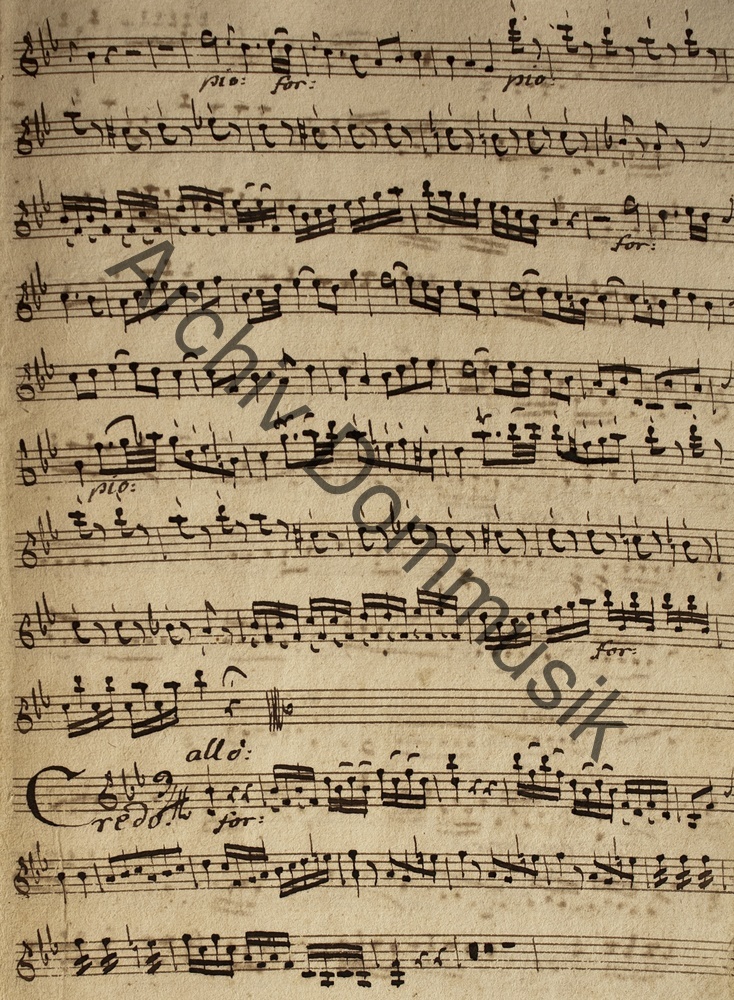 pio: for: pio
for:
pio:
for:
allo:
Credo. for:
Archiv Dommusik